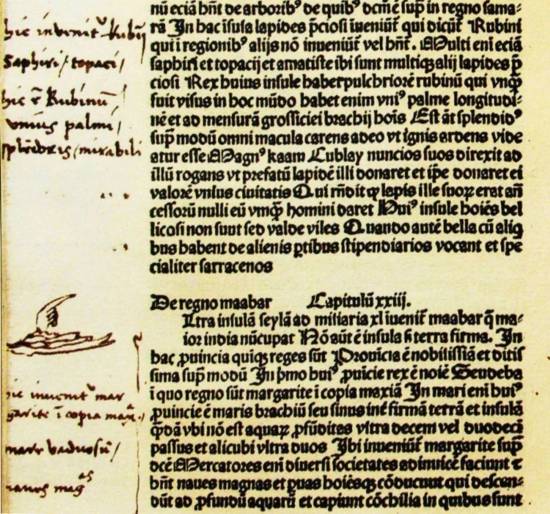 nū eciā hn̄t de arboribꝰ de quibꝰ dcm̄ ē sup̄ in regno sama-
rā In hac īsula lapides p̄ciosi īueniūt᷑ qui dicūt᷑ Rubini
qui ī regionibꝰ alijs nō inueniūt᷑ vel hn̄t. Multi eni eciā
saphiri et topacij et amatiste ibi sunt multiqꝫ alij lapides p̄
ciosi Rex huius insule habet pulchriorē rubinū qui vnqꝫ̄
fuit visus in hoc mūdo habet enim vniꝰ palme longitudi-
nē et ad mensurā grossiciei brachij hoīs Est āt splendidꝰ
sup̄ modū omni macula carens adeo vt ignis ardens vide
atur esse Magnꝰ kaam Cublay nuncios suos direxit ad
illū rogans vt prefatū lapidē illi donaret et ip̄e donaret ei
valorē vnius ciuitatis Qui rn̄dit qꝫ lapis ille suoꝝ erat an̄
cessorū nulli eū vnqꝫ̄ homini daret Huiꝰ insule hoīes bel
licosi non sunt sed valde viles Quando autē bella cū aliq̄
bus habent de alienis ꝑtibus stipendiarios vocant et spe
cialiter sarracenos
De regno maabar Capitulū xxiij.
Ltra insulā seylā ad miliaria xl īuenit᷑ maabar q̄ ma-
ior india nūcupat᷑ Nō aūt ē insula ꝫ terra firma. In
hac ꝓuincia quiqꝫ reges sūt Prouīcia ē nobilissīa et ditis
sima sup̄ modū In p̄mo huiꝰ ꝓuīcie rex ē noīe Seudeba
ī quo regno sūt margarite ī copia maxīa In mari eni huiꝰ
ꝓuincie ē maris brachiū seu sinus inē firmā terrā et insulā
q̄ndā vbi nō est aquaꝝ ꝓfūditas vltra decem vel duodecī
passus et alicubi vltra duos Ibi inueniūt᷑ margarite sup̄
dcē Mercatores eni diuersi societates adinuicē faciunt ꞇ
hn̄t naues magnas et ꝑuas hoīesqꝫ cōducunt qui descen-
dūt ad ꝓfundū aquarū et capiunt cōchilia in quibus sunt
hic inveniūt᷑ Rubini
Saphiri / topaci /
hic ē Rubinū
vnius palmi /
splēdēs / mirabili
hic inveniūt᷑ mar
garite ī copia max̄
mare vadosū /
naues magas